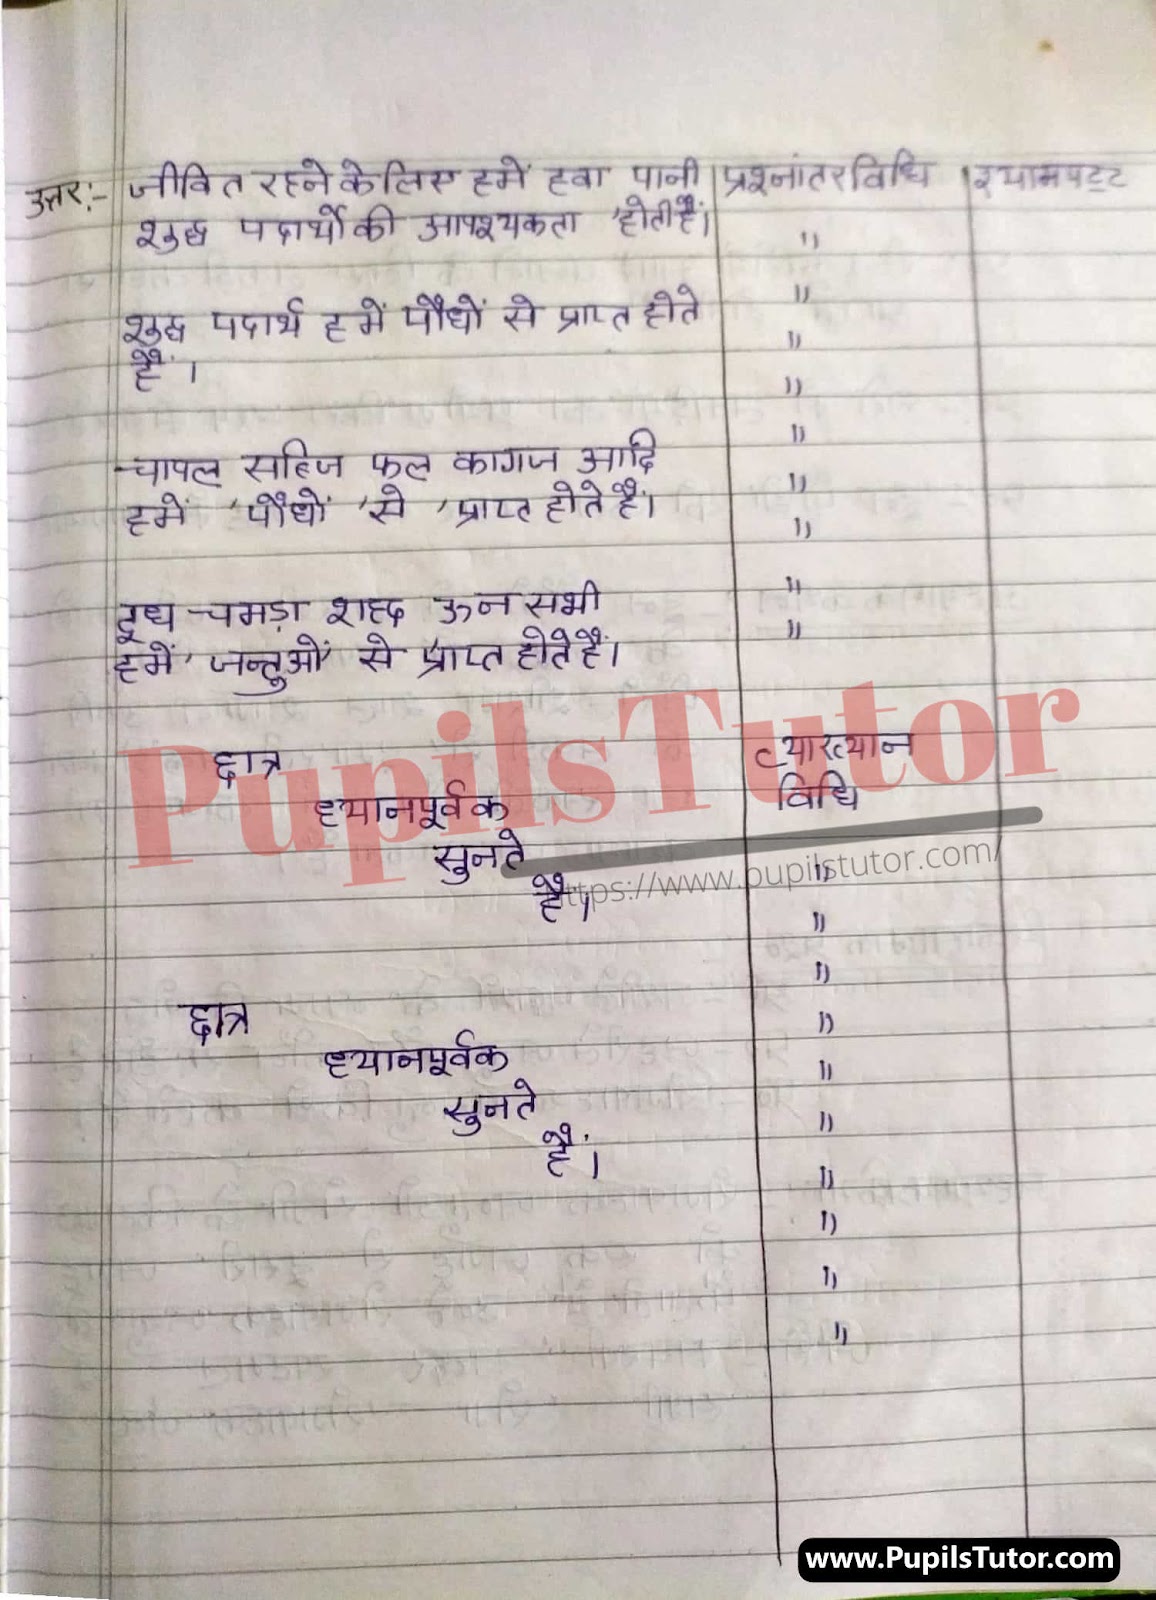 उत्तर:- जीवित रहने के लिए हमें हवा पानी | प्रश्नांतर विधि | श्यामपट्ट
शुद्ध पदार्थो की आवश्यकता 'होती हैं। "
"
शुद्ध पदार्थ हमें पौधों से प्राप्त होते
"
हैं। "
"
चावल सब्जि फल कागज आदि
"
हमें 'पौधों' 'से' 'प्राप्त होते हैं।
"
"
दूध चमड़ा शहद ऊन सभी
"
हमें' जन्तुओं' से प्राप्त होते हैं।
PupilsTutor
छात्र व्याख्यान
ध्यानपूर्वक विधि
सुनते
https://www.pupilstutor.com/
हैं। "
"
"
छात्र "
ध्यानपूर्वक "
सुनते "
हैं।
"
"
"
"
www.PupilsTutor.com